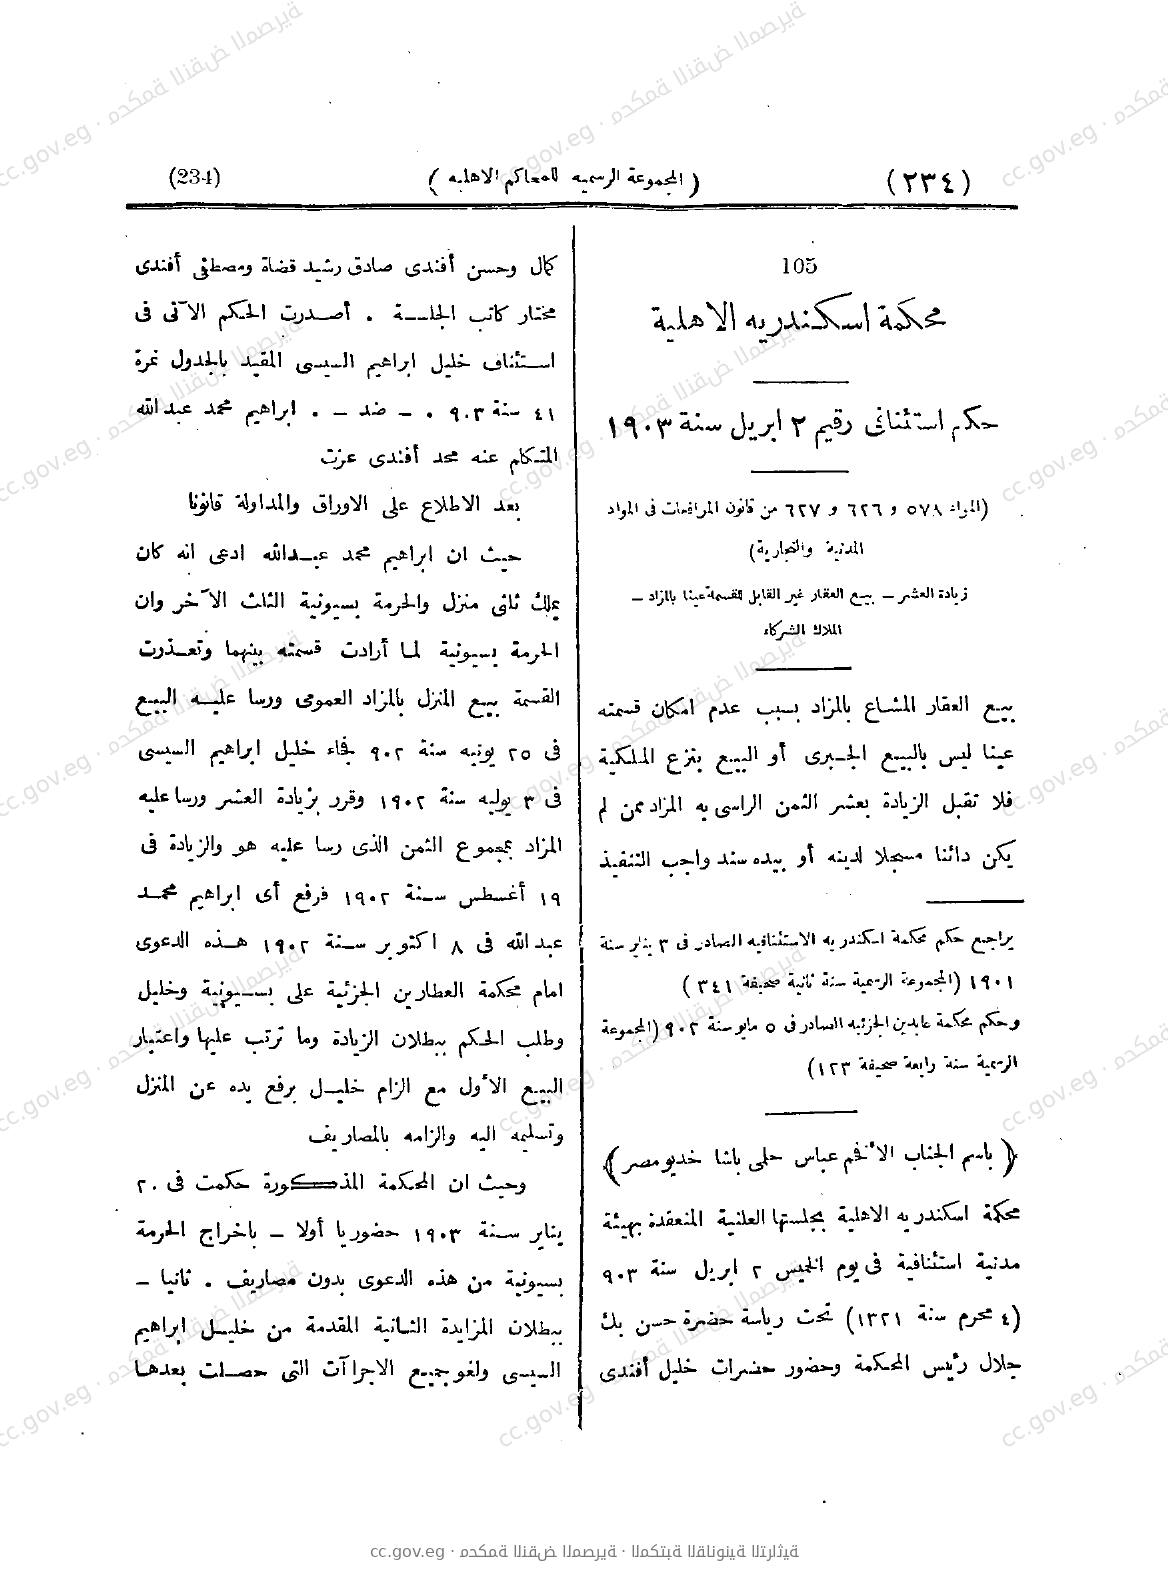 (٢٣٤)
( المجموعة الرسميه للمحاكم الاهليه )
(234)
105
محكمة اسكندريه الاهلية
حكم استئنافى رقيم ٢ ابريل سنة ١٩٠٣
(المواد ٥٧٨ و ٦٢٦ و ٦٢٧ من قانون المرافعات فى المواد
المدنية والتجارية)
زيادة العشر – بيع العقار غير القابل للقسمة عينا بالمزاد –
الملاك الشركاء
بيع العقار المشاع بالمزاد بسبب عدم امكان قسمته
عينا ليس بالبيع الجبرى أو البيع بنزع الملكية
فلا تقبل الزيادة بعشر الثمن الراسى به المزاد ممن لم
يكن دائنا مسجلا لدينه أو بيده سند واجب التنفيذ
يراجع حكم محكمة اسكندريه الاستئنافيه الصادر فى ٣ يناير سنة
١٩٠١ (المجموعة الرسمية سنة ثانية صحيفة ٣٤١ )
وحكم محكمة عابدين الجزئيه الصادر فى ٥ مايو سنة ٩٠٢ (المجموعة
الرسمية سنة رابعة صحيفة ١٢٣)
( باسم الجناب الأفخم عباس حلمى باشا خديو مصر )
محكمة اسكندريه الاهلية بجلستها العلنية المنعقدة بهيئة
مدنية استئنافية فى يوم الخميس ٢ ابريل سنة ٩٠٣
(٤ محرم سنة ١٣٢١) تحت رياسة حضرة حسن بك
جلال رئيس المحكمة وحضور حضرات خليل أفندى
كمال وحسن أفندى صادق رشيد قضاة ومصطفى أفندى
مختار كاتب الجلسة . أصدرت الحكم الآتى فى
استئناف خليل ابراهيم السيسى المقيد بالجدول نمرة
٤١ سنة ٩٠٣ . – ضد – . ابراهيم محمد عبد الله
المتكلم عنه محمد أفندى عزت
بعد الاطلاع على الاوراق والمداولة قانونا
حيث ان ابراهيم محمد عبدالله ادعى انه كان
يملك ثلثى منزل والحرمة بسيونية الثلث الآخر وان
الحرمة بسيونية لما أرادت قسمته بينهما وتعذرت
القسمة بيع المنزل بالمزاد العمومى ورسا عليه البيع
فى ٢٥ يونيه سنة ٩٠٢ فجاء خليل ابراهيم السيسى
فى ٣ يوليه سنة ١٩٠٢ وقرر بزيادة العشر ورسا عليه
المزاد بمجموع الثمن الذى رسا عليه هو والزيادة فى
١٩ أغسطس سنة ١٩٠٢ فرفع أى ابراهيم محمد
عبد الله فى ٨ اكتوبر سنة ١٩٠٢ هذه الدعوى
امام محكمة العطارين الجزئية على بسيونية وخليل
وطلب الحكم ببطلان الزيادة وما ترتب عليها واعتبار
البيع الأول مع الزام خليل برفع يده عن المنزل
وتسليمه اليه والزامه بالمصاريف
وحيث ان المحكمة المذكورة حكمت فى ٢٠
يناير سنة ١٩٠٣ حضوريا أولا – باخراج الحرمة
بسيونية من هذه الدعوى بدون مصاريف . ثانيا –
ببطلان المزايدة الثانية المقدمة من خليل ابراهيم
السيسى ولغو جميع الاجراآت التى حصلت بعدها
cc.gov.eg · محكمة النقض المصرية · المكتبة القانونية التراثية